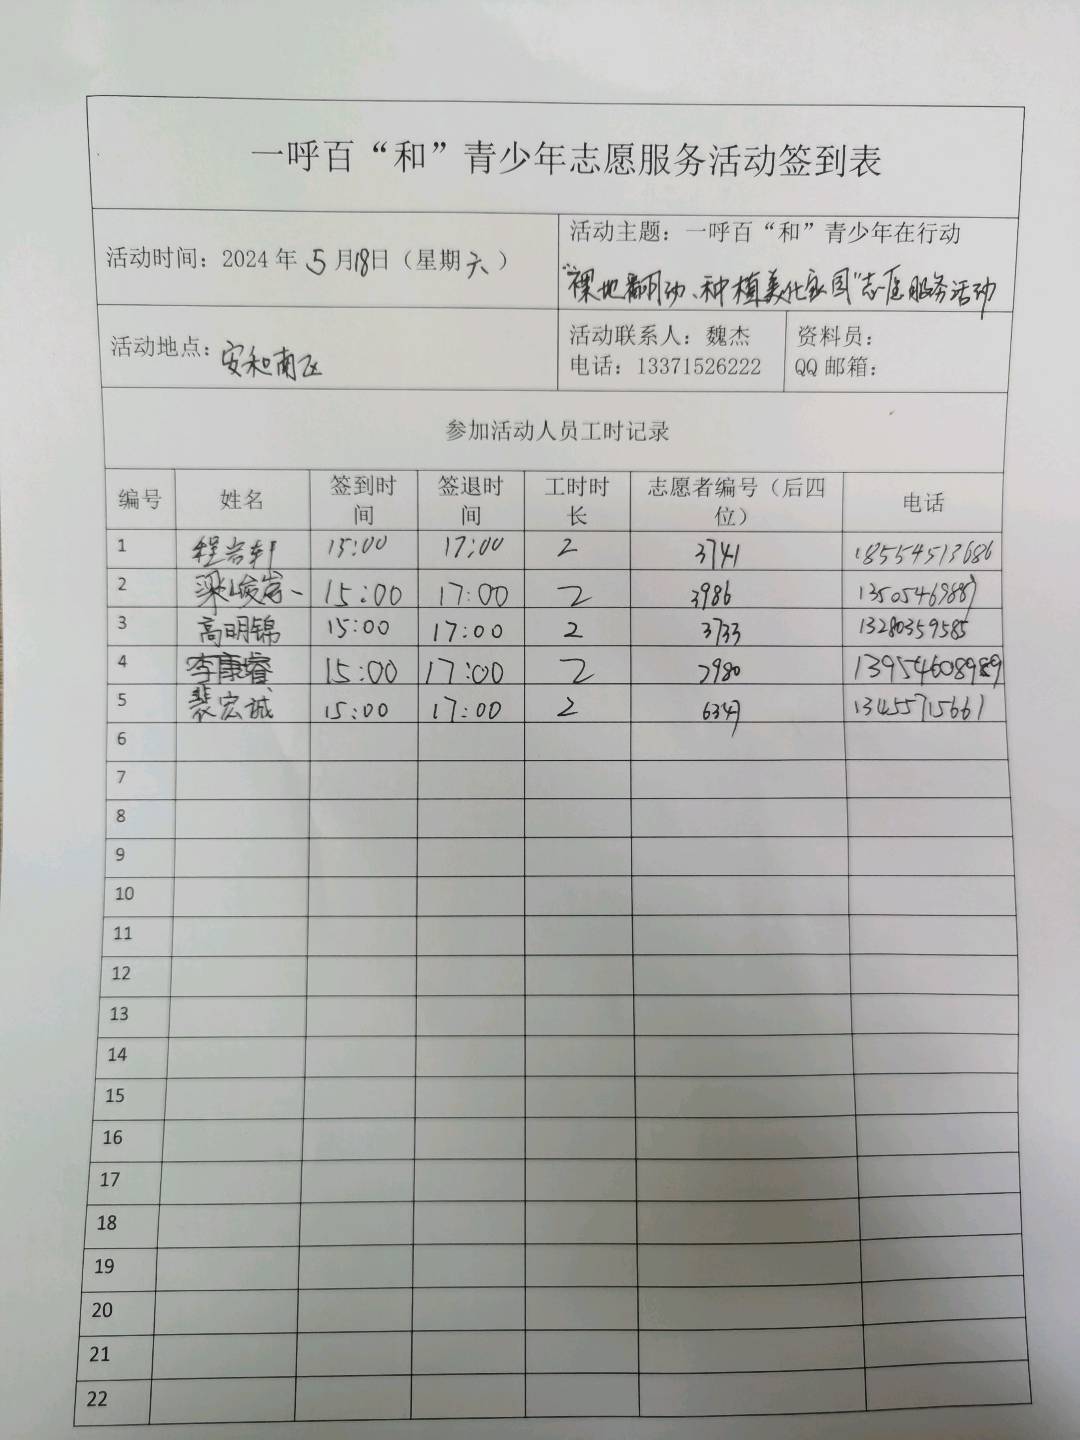 一呼百“和”青少年志愿服务活动签到表
活动时间：2024年5月18日（星期六）
活动主题：一呼百“和”青少年在行动
“裸地翻动、种植美化家园”志愿服务活动
活动地点：安和南区
活动联系人：魏杰
电话：13371526222
资料员：
QQ邮箱：
参加活动人员工时记录
编号 姓名 签到时间 签退时间 工时时长 志愿者编号（后四位） 电话
1 15:00 17:00 2 3741 18554513686
2 15:00 17:00 2 3986
3 高明锦 15:00 17:00 2 3733 13280359585
4 李康睿 15:00 17:00 2
5 裴宏诚 15:00 17:00 2 6347 13455715661
6
7
8
9
10
11
12
13
14
15
16
17
18
19
20
21
22